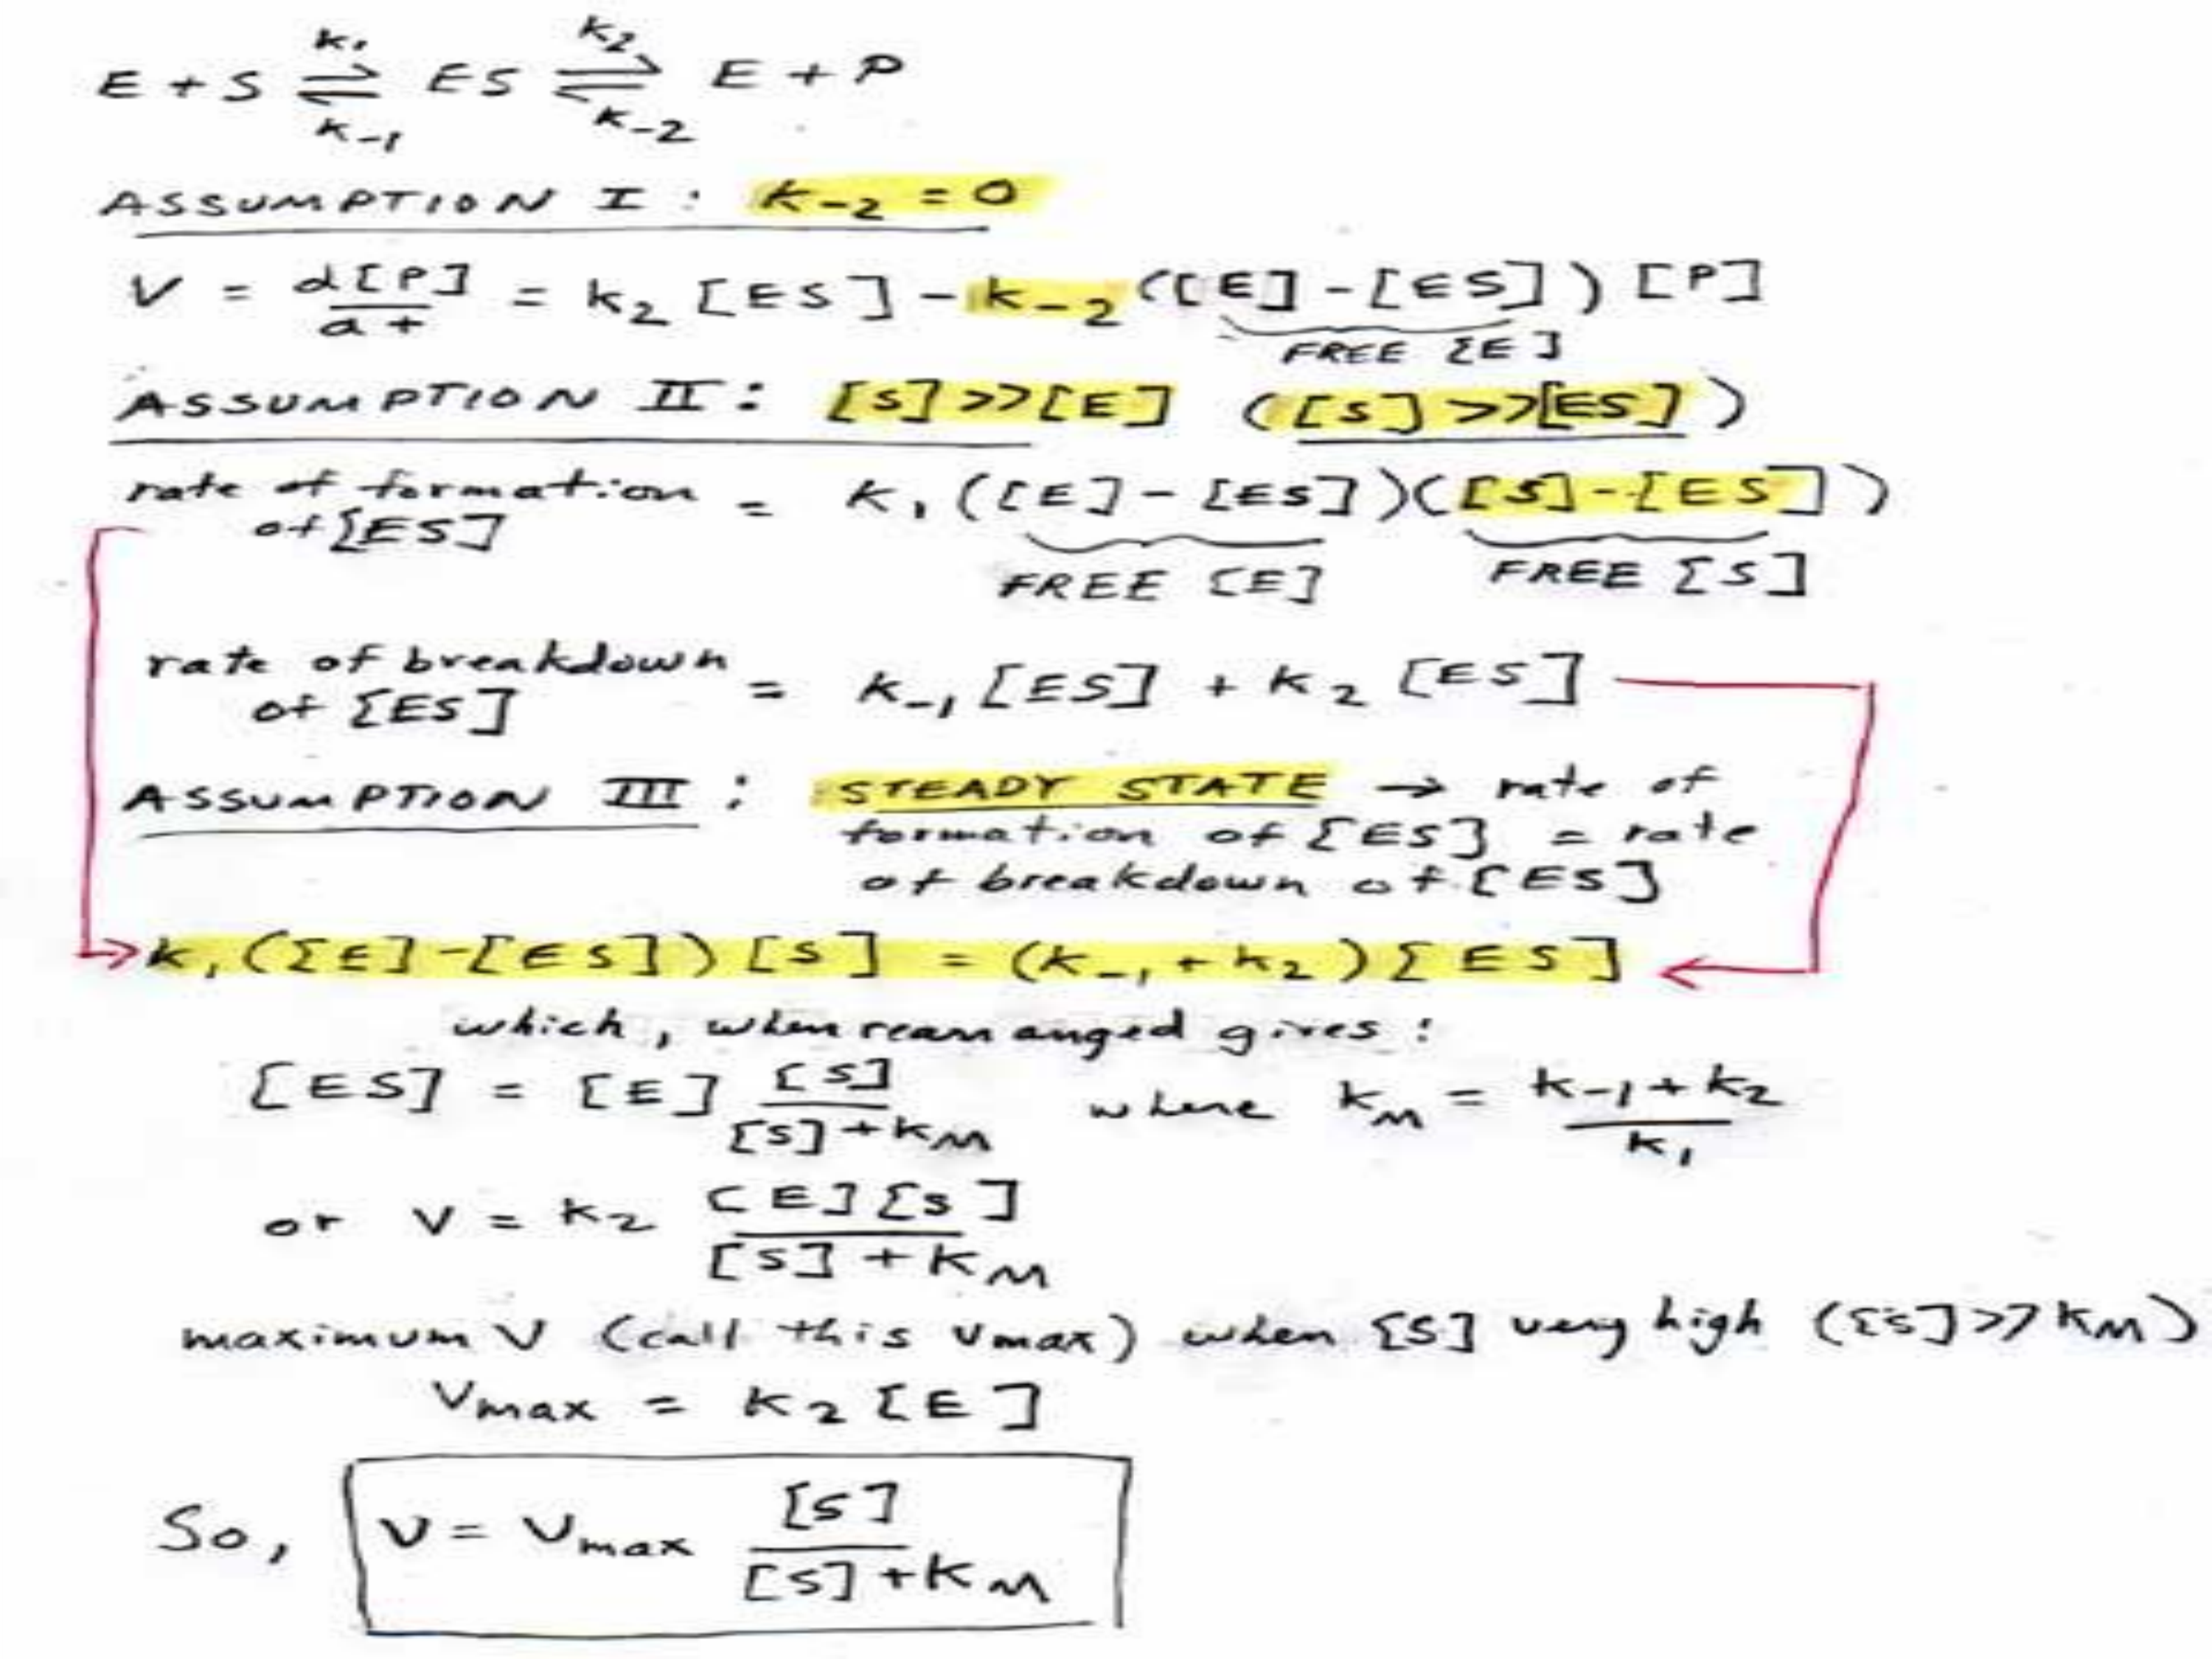 E + S ⇌ ES ⇌ E + P
k₁ k₂
k₋₁ k₋₂
ASSUMPTION I : k₋₂ = 0
V = d[P]/dt = k₂ [ES] - k₋₂ ([E] - [ES]) [P]
FREE [E]
ASSUMPTION II : [S] >> [E] ([S] >> [ES])
rate of formation of [ES] = k₁ ([E] - [ES])([S] - [ES])
FREE [E] FREE [S]
rate of breakdown of [ES] = k₋₁ [ES] + k₂ [ES]
ASSUMPTION III : STEADY STATE → rate of
formation of [ES] = rate
of breakdown of [ES]
k₁ ([E] - [ES]) [S] = (k₋₁ + k₂) [ES]
which, when rearranged gives :
[ES] = [E] [S]/([S] + KM) where KM = (k₋₁ + k₂)/k₁
or V = k₂ [E][S]/([S] + KM)
maximum V (call this Vmax) when [S] very high ([S] >> KM)
Vmax = k₂ [E]
So, V = Vmax [S]/([S] + KM)